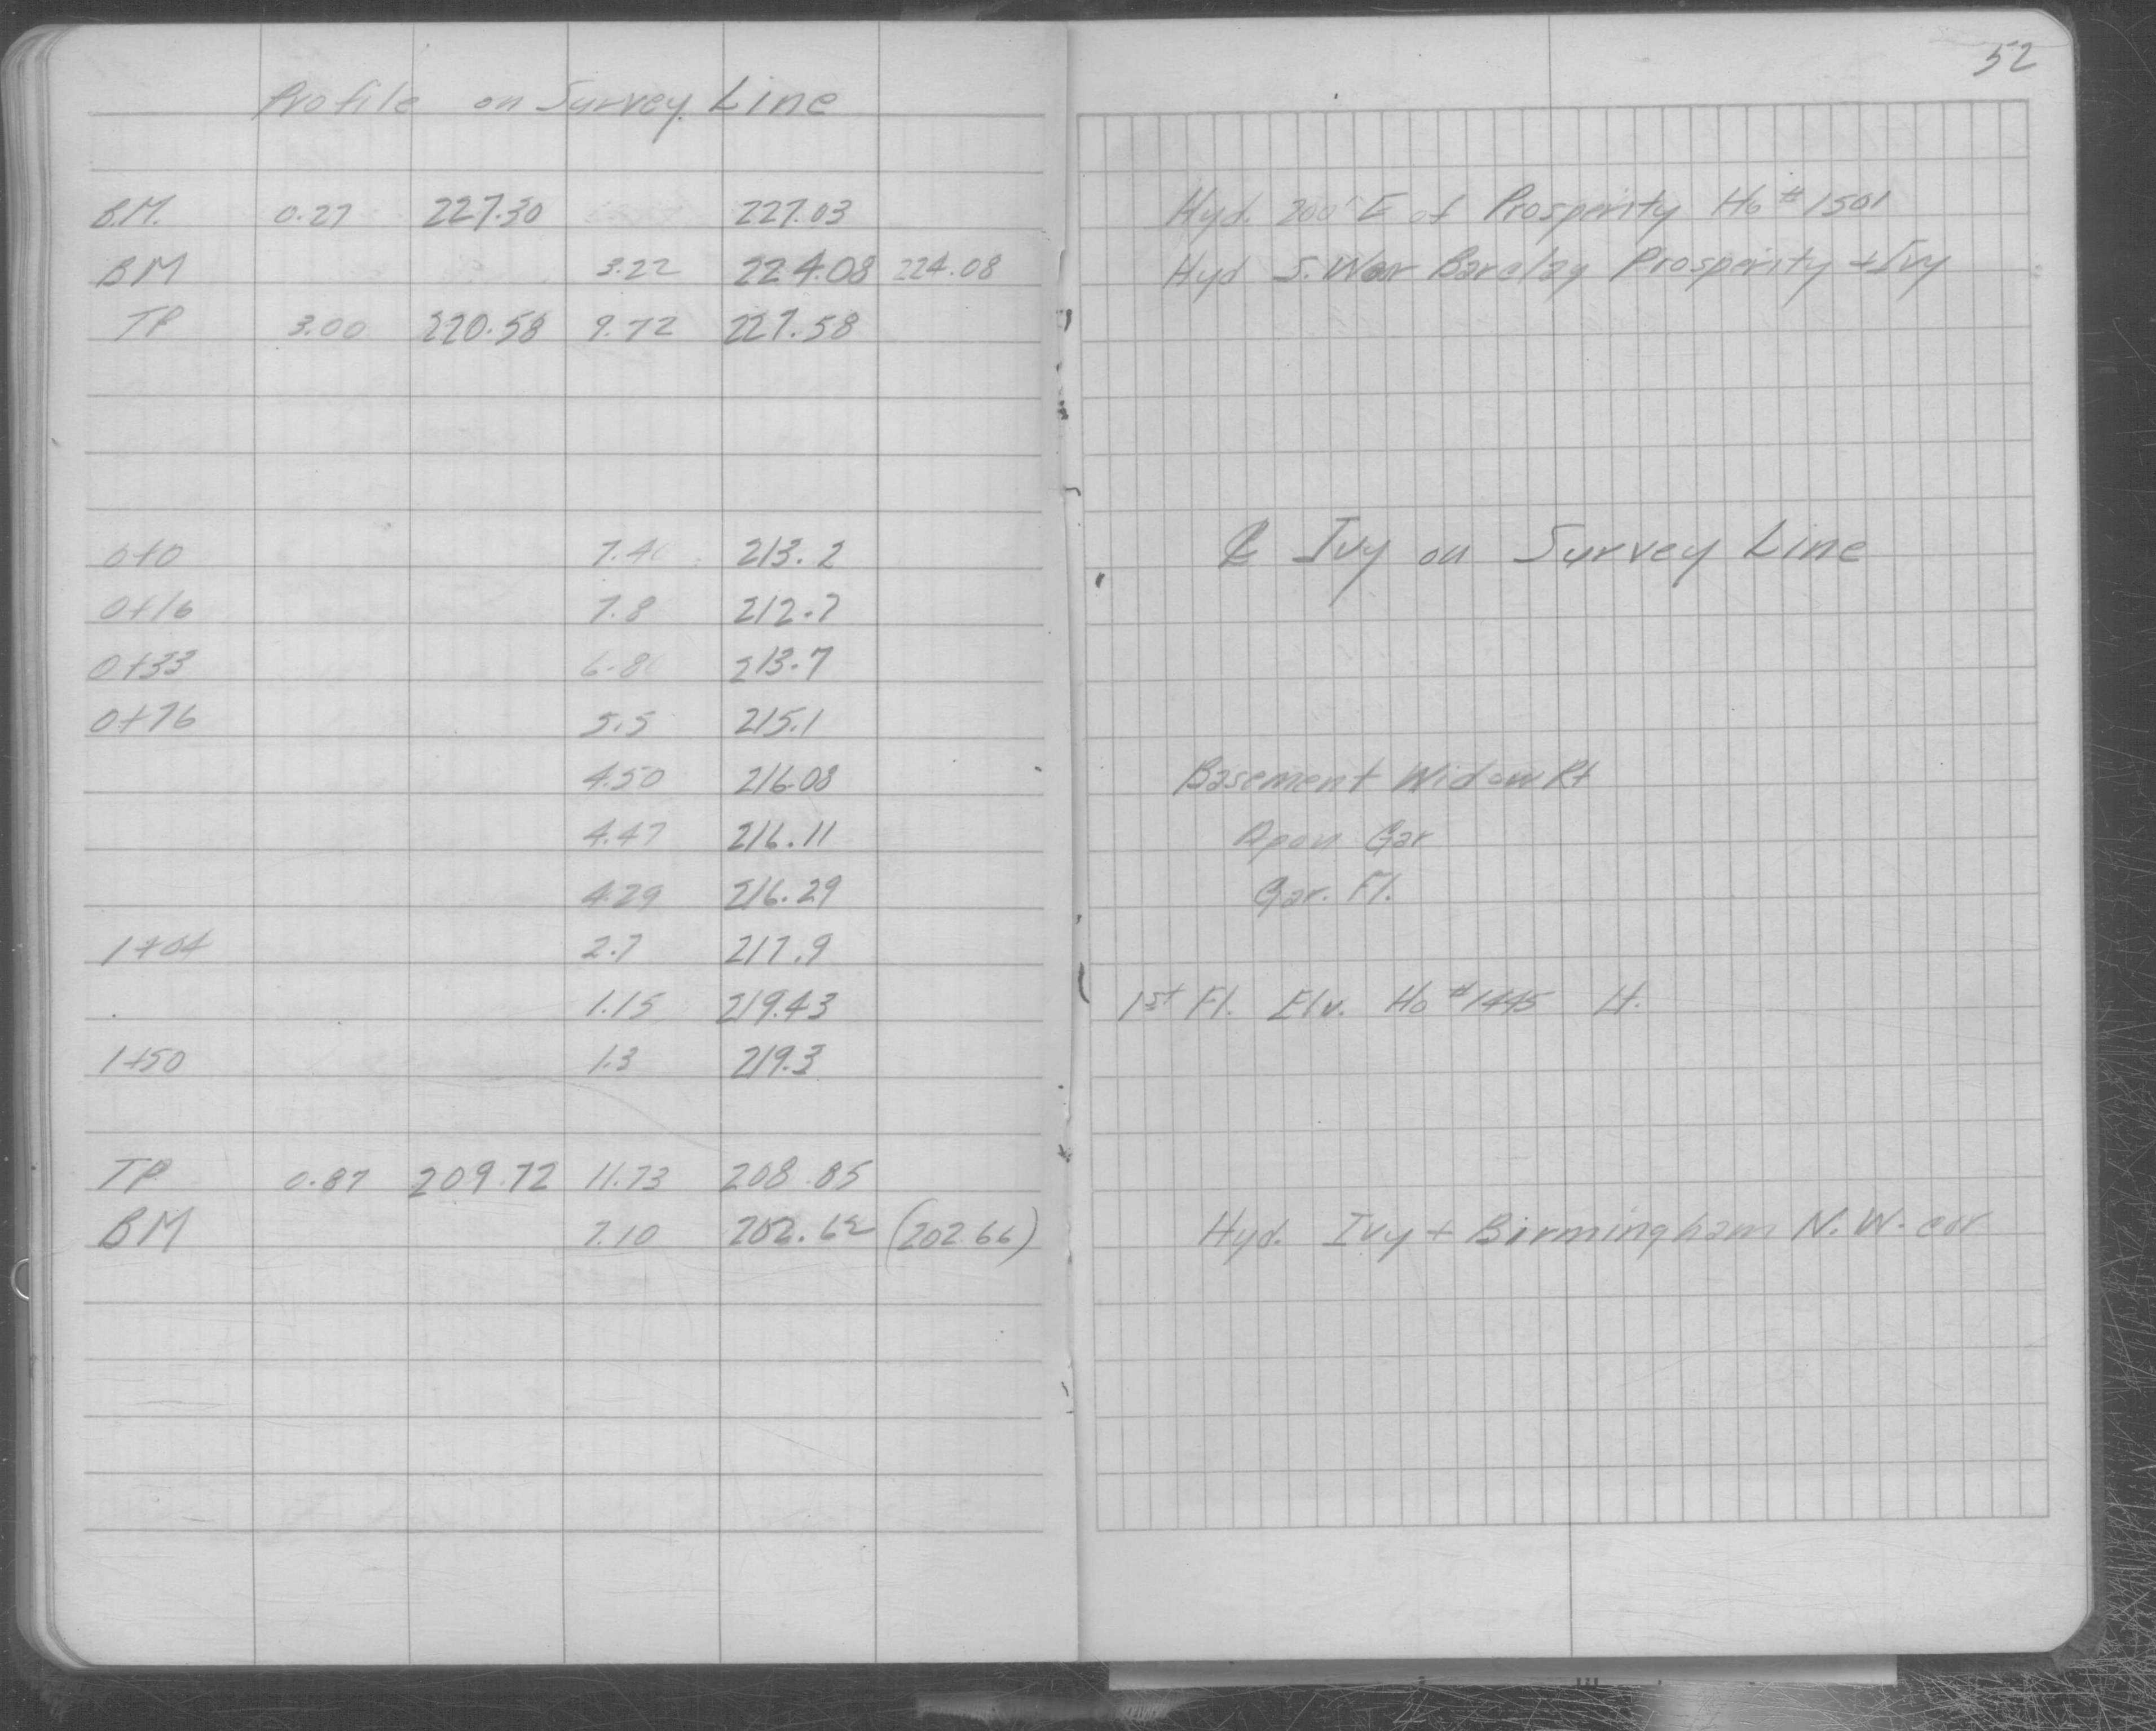 52
Profile on Survey Line
B.M. 0.27 227.30 227.03 Hyd. 200' E of Prosperity Ho #1501
BM 3.22 224.08 224.08 Hyd S.W cor Barclay Prosperity + Ivy
TP 3.00 220.58 9.72 227.58
0+0 7.4 213.2 ℄ Ivy on Survey Line
0+16 7.8 212.7
0+33 6.8 213.7
0+76 5.5 215.1
4.50 216.08 Basement Widow Rt
4.47 216.11 Apon Gar
4.29 216.29 Gar. Fl.
1+04 2.7 217.9
1.15 219.43 1st Fl. Elv. Ho #1445 Lt.
1+50 1.3 219.3
TP 0.87 209.72 11.73 208.85
BM 7.10 202.62 (202.66) Hyd. Ivy + Birmingham N.W. cor